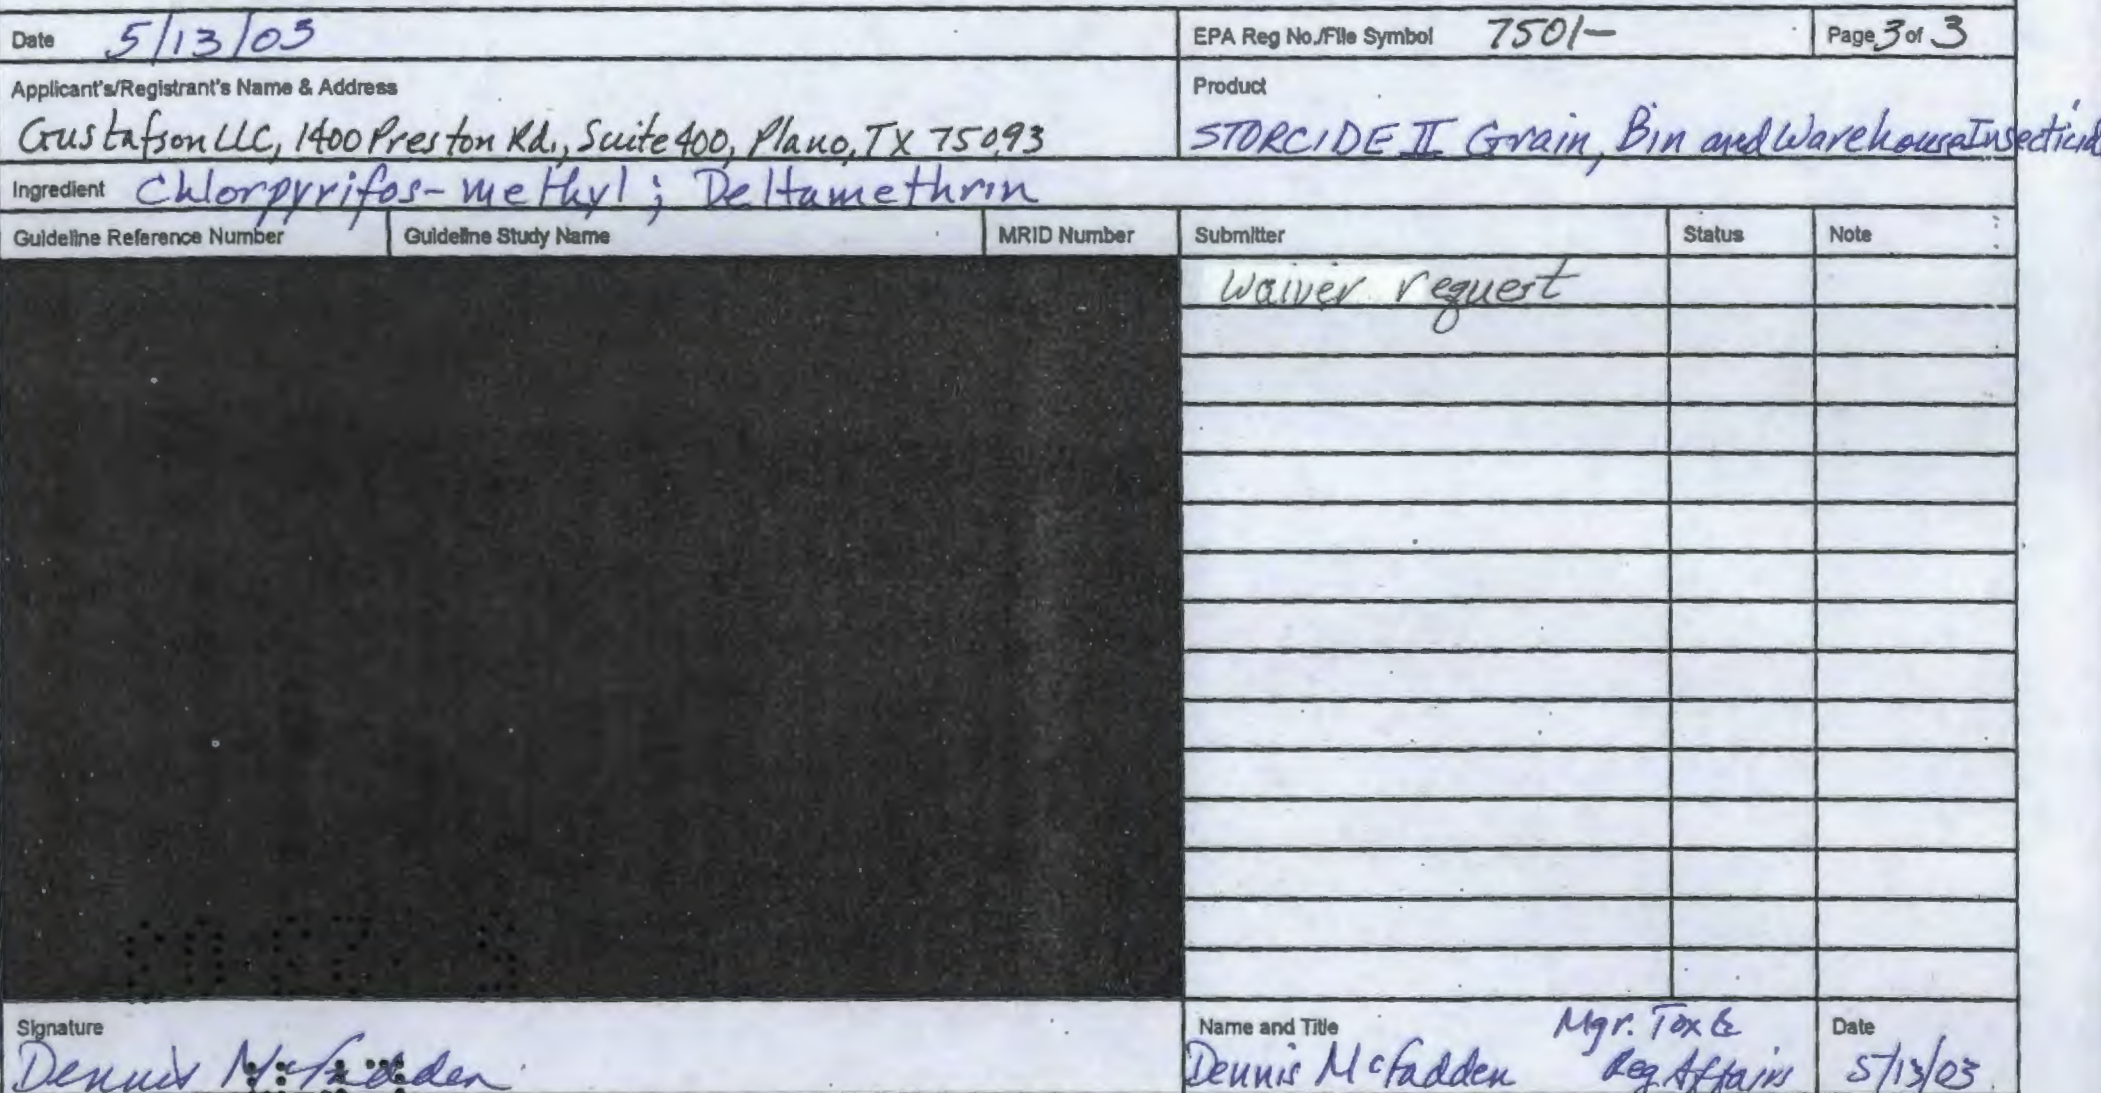 Date 5/13/03 EPA Reg No./File Symbol 7501/- Page 3 of 3
Applicant's/Registrant's Name & Address Product
Gustafson LLC, 1400 Preston Rd., Suite 400, Plano, TX 75093 STORCIDE II Grain, Bin and Warehouse Insecticid
Ingredient Chlorpyrifos-methyl; Deltamethrin
Guideline Reference Number Guideline Study Name MRID Number Submitter Status Note
Waiver request
Signature Name and Title Mgr. Tox & Date
Dennis McFadden Dennis McFadden Reg Affairs 5/13/03